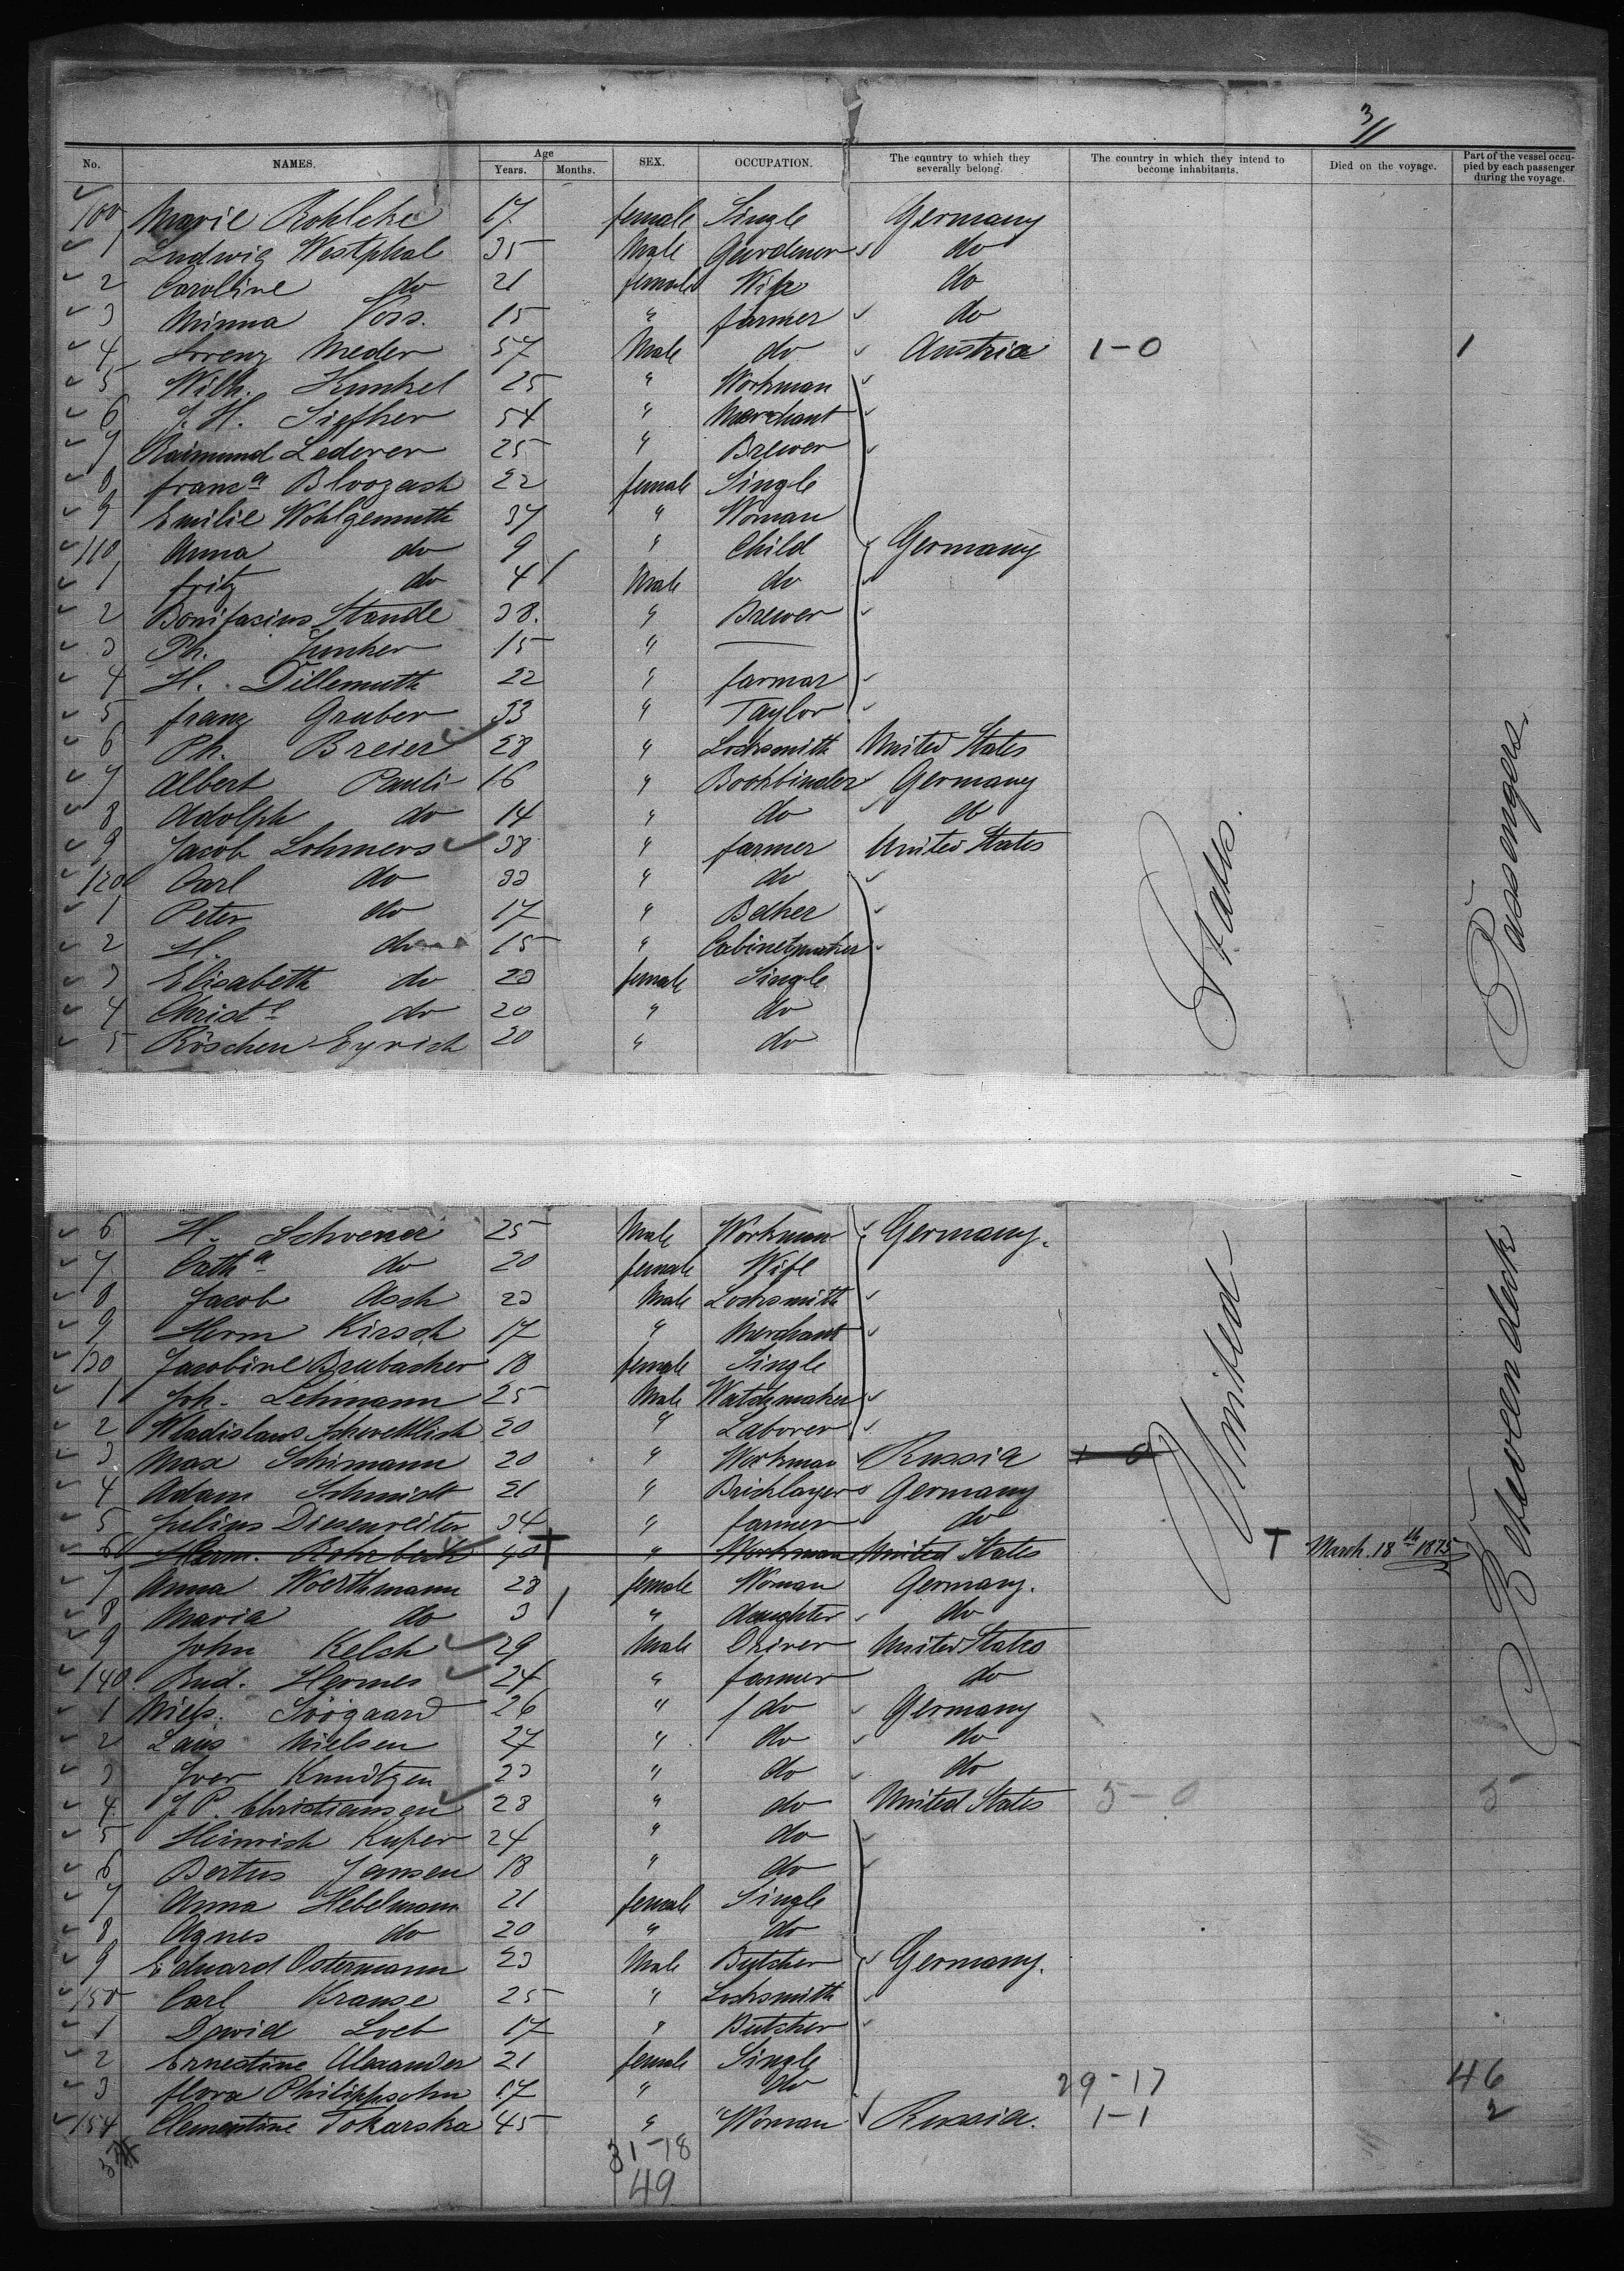 3/11
No. NAMES. Age Years. Months. SEX. OCCUPATION. The country to which they severally belong. The country in which they intend to become inhabitants. Died on the voyage. Part of the vessel occupied by each passenger during the voyage.
100 Marie Rohlcke 17 female Single Germany
1 Ludwig Westphal 35 Male Gardener do
2 Caroline do 21 female Wife do
3 Minna Voss. 15 " farmer do
4 Lorenz Meder 57 Male do Austria 1-0 1
5 Wilh. Kunkel 25 " Workman
6 J. H. Siefher 54 " Merchant
7 Raimund Lederer 25 " Brewer
8 Franca Bloozach 22 female Single
9 Emilie Wohlgemuth 37 " Woman
110 Anna do 9 " Child Germany
1 fritz do 4 Male do
2 Bonifacius Staude 38. " Brewer
3 Ph. Junker 15 " —
4 H. Dillemuth 22 " farmar
5 franz Gruber 33 " Taylor
6 Ph. Breier 28 " Locksmith United States
7 Albert Pauli 16 " Bookbinder Germany
8 Adolph do 14 " do do
9 Jacob Lohmers 38 " farmer United States
120 Carl do 33 " do
1 Peter do 17 " Baker
2 H. do 15 " Cabinetmaker
3 Elisabeth do 23 female Single
4 Christe do 20 " do
5 Röschen Eyrich 20 " do
6 H. Schoener 25 Male Workman Germany.
7 Catha do 20 female Wife
8 Jacob Asch 23 Male Locksmith
9 Herm Kirsch 17 " Merchant
130 Jacobine Brubacher 18 female Single
1 Joh. Lehmann 25 Male Watchmaker
2 Wladislaus Schwettlich 20 " Laborer
3 Max Schimann 20 " Workman Russia 1-0
4 Adam Schmidt 21 " Bricklayer Germany
5 Julius Diesenreiter 34 " farmer do
6 Herm. Rohrbeck 40 " Workman United States T March. 18th 1875
7 Anna Woerthmann 28 female Woman Germany.
8 Maria do 3 " daughter do
9 John Kelch 29 Male Driver United States
140 Rud. Hermes 24 " farmer do
1 Niels. Söögaard 26 " do Germany
2 Laus Nielsen 27 " do do
3 Iver Knudtzen 23 " do do
4 J. P. Christiansen 28 " do United States 5-0 5
5 Heinrich Kuper 24 " do
6 Bertus Jansen 18 " do
7 Anna Hebelmann 21 female Single
8 Agnes do 20 " do
9 Eduard Ostermann 23 Male Butcher Germany.
150 Carl Krause 25 " Locksmith
1 David Loeb 17 " Butcher
2 Ernestine Alexander 21 female Single
3 flora Philippsohn 17 " do 29-17 46
154 Clementine Tokarska 45 " Woman Russia. 1-1 2
31-18
49
United States.
Between deck Passengers